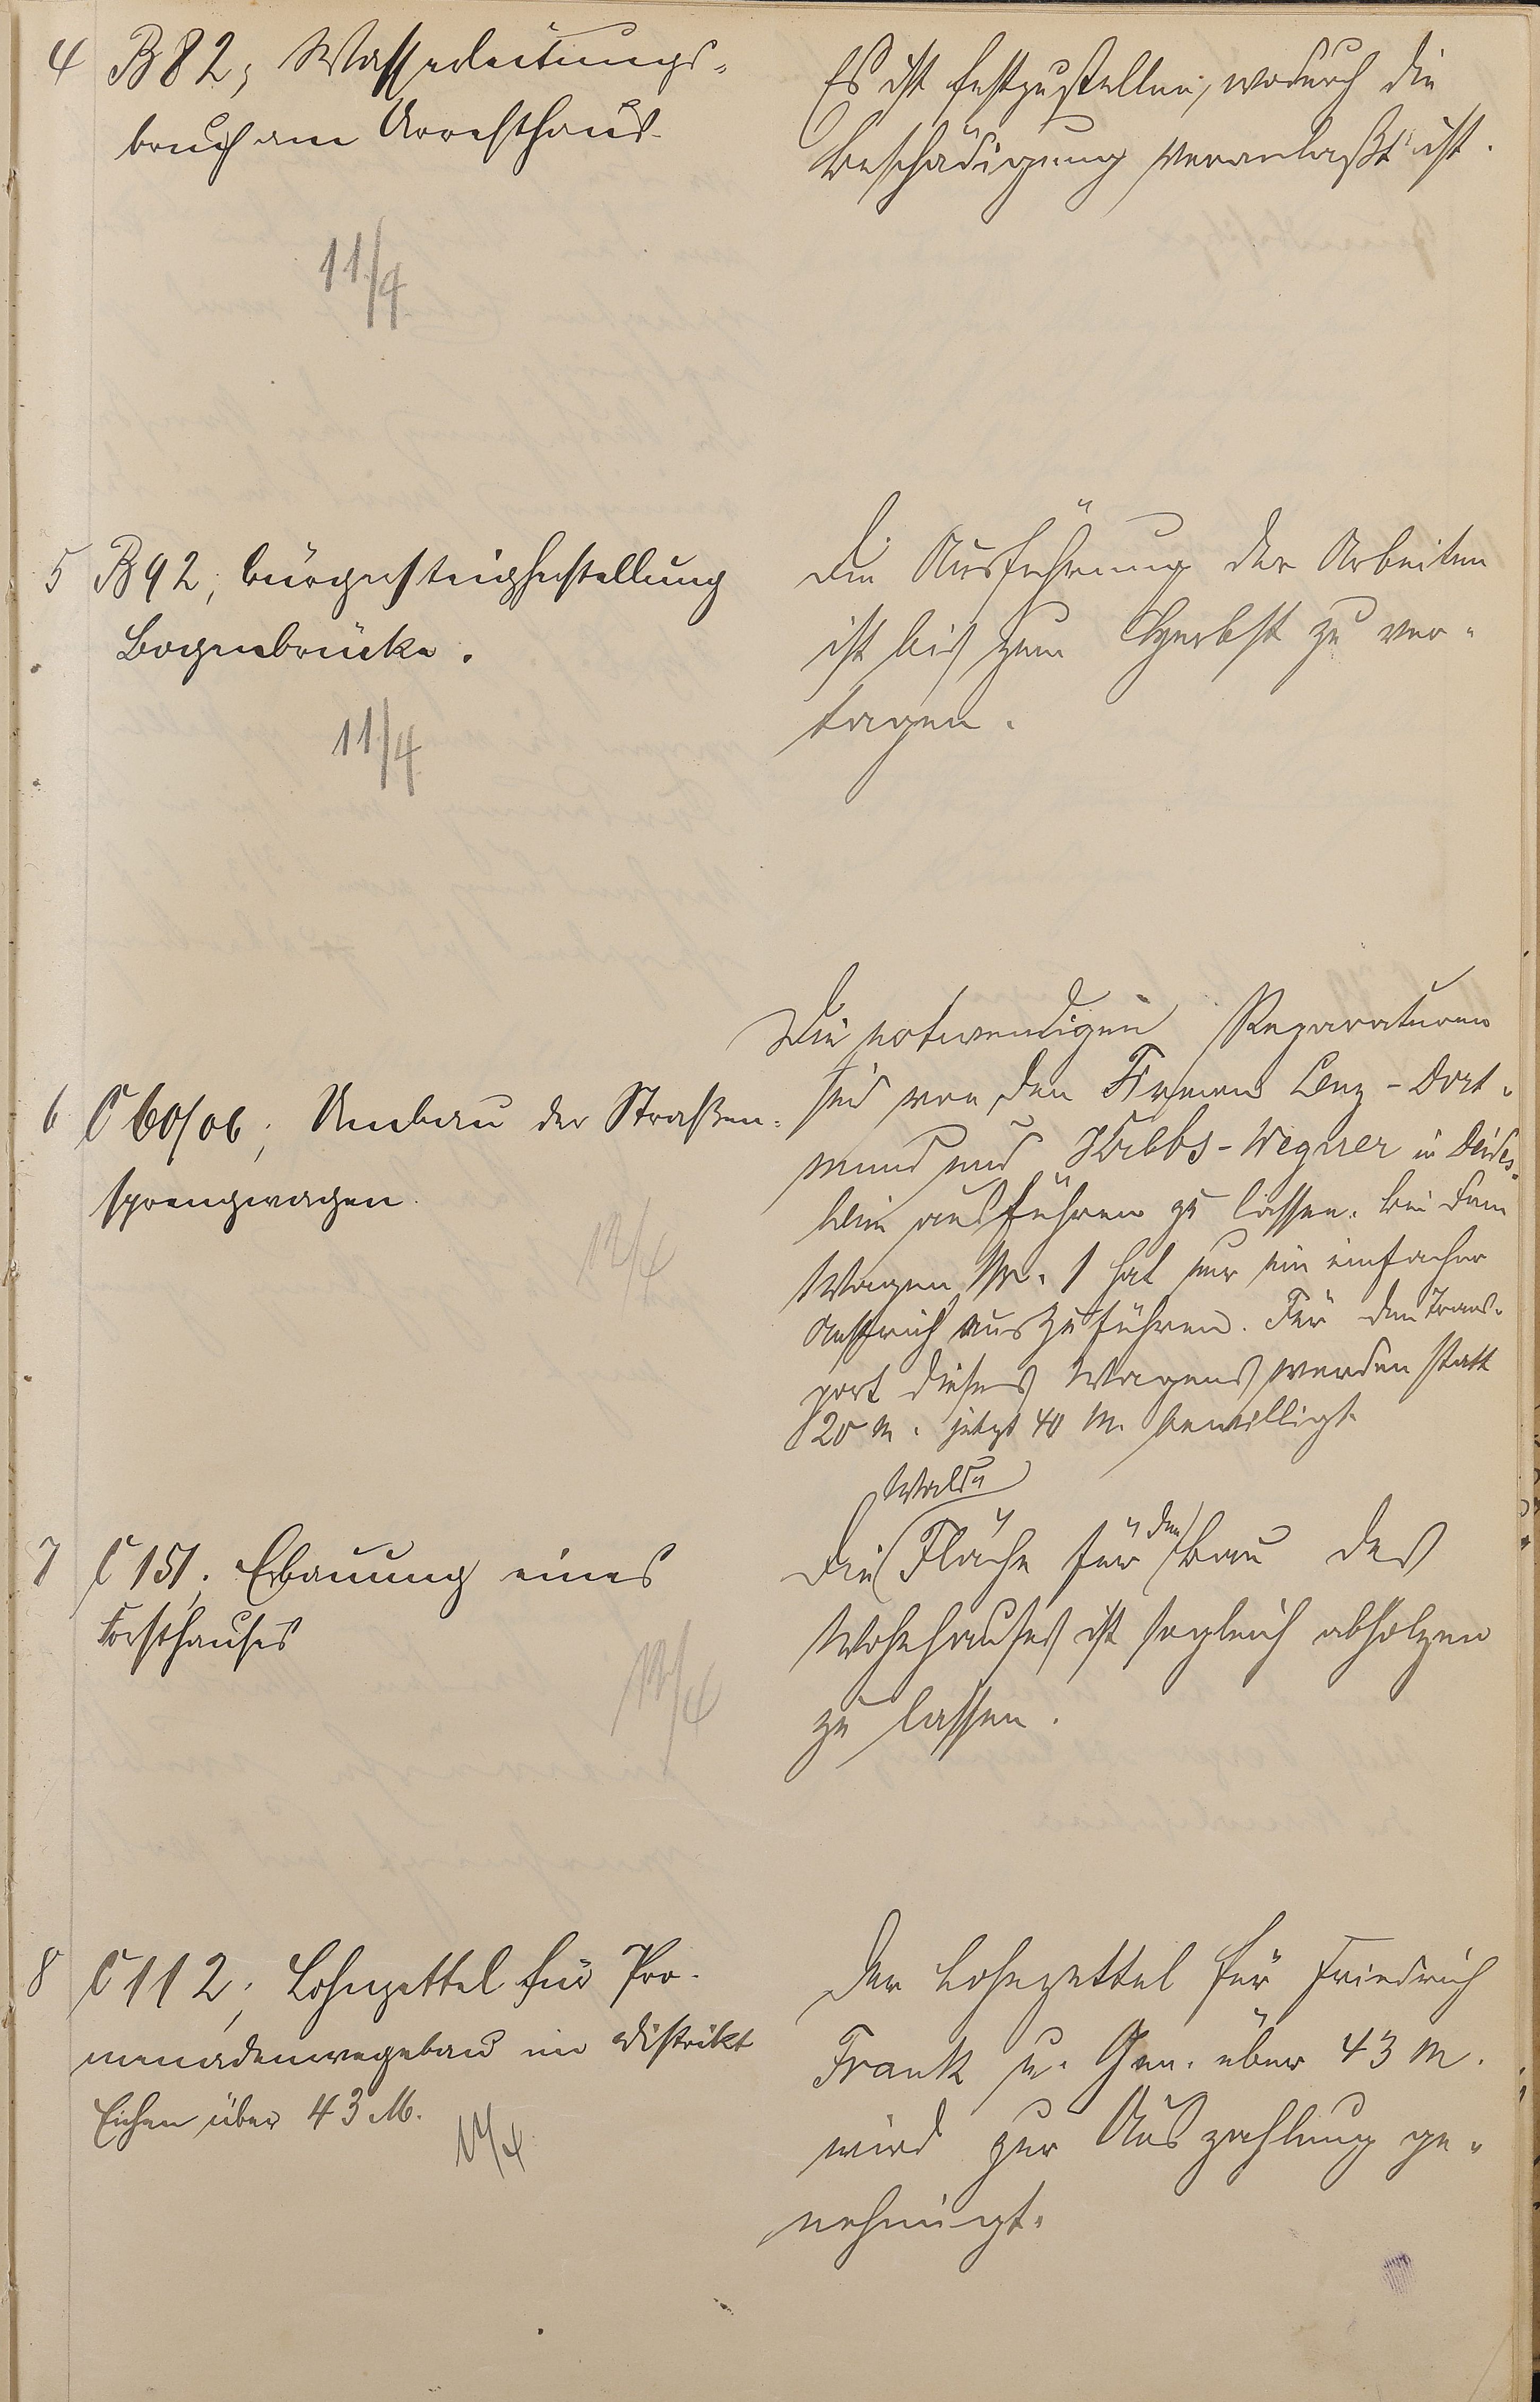 4 B 82; Wasserleitungs-
bruch am Arresthaus.
11/4
Es ist festzustellen, wodurch die
Beschädigung veranlaßt ist.
5 B 92; Bürgersteigherstellung
Bogenbrücke.
11/4
Die Ausführung der Arbeiten
ist bis zum Herbst zu ver-
tagen.
6 C 60/06; Umbau der Straßen-
sprengwagen.
12/4
Die notwendigen Reparaturen
sind von den Firmen Lenz-Dort-
mund und -Wegner in Deides-
heim ausführen zu lassen. Bei dem
Wagen Nr. 1 hat nur ein einfacher
Anstrich auszuführen. Für den Trans-
port dieses Wagens werden statt
20 M. jetzt 40 M. bewilligt.
7 C 151; Erbauung eines
Forsthauses
12/4
Wald-
Die Fläche für den Bau des
Wohnhauses ist sogleich abholzen
zu lassen.
8 C 112; Lohnzettel für Pro-
menadenwegebau im Distrikt
Eichen über 43 M.
11/4
Der Lohnzettel für Friedrich
Frank u. Gen. über 43 M.
wird zur Auszahlung ge-
nehmigt.